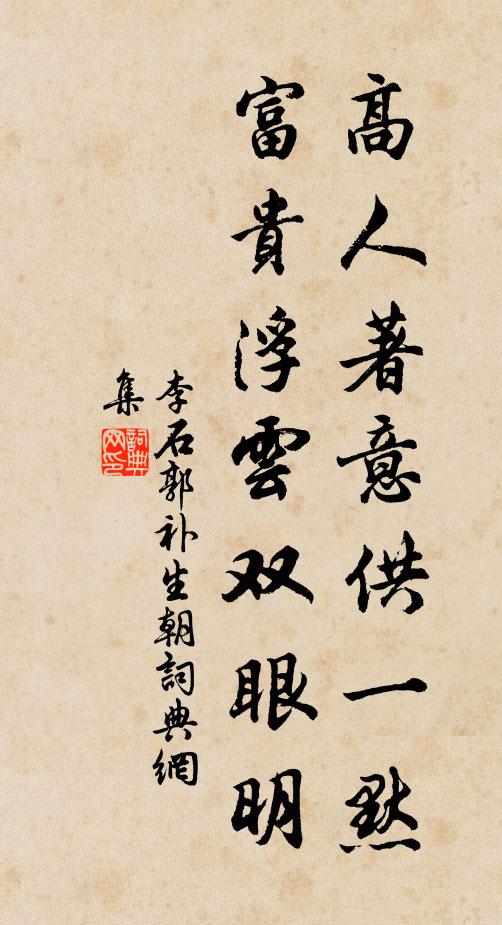 高人著意供一默
富貴浮雲双眼明
李石郭补生朝詞典網
集
詞典
网印